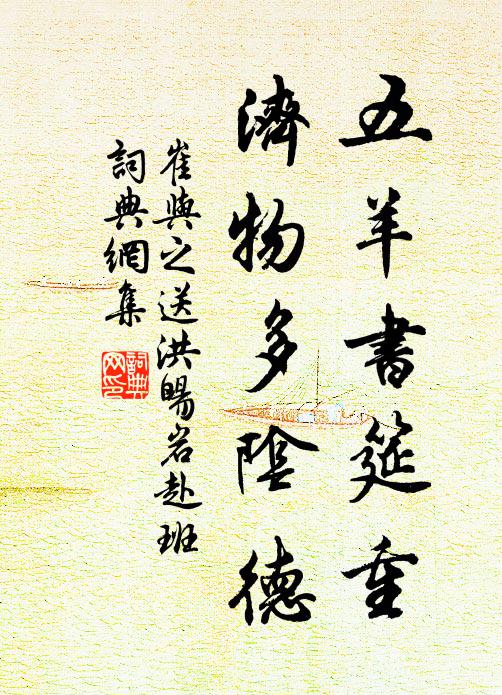 五羊書筵重
濟物多陰德
崔與之送洪暘岩赴班
詞典網集
詞典網印